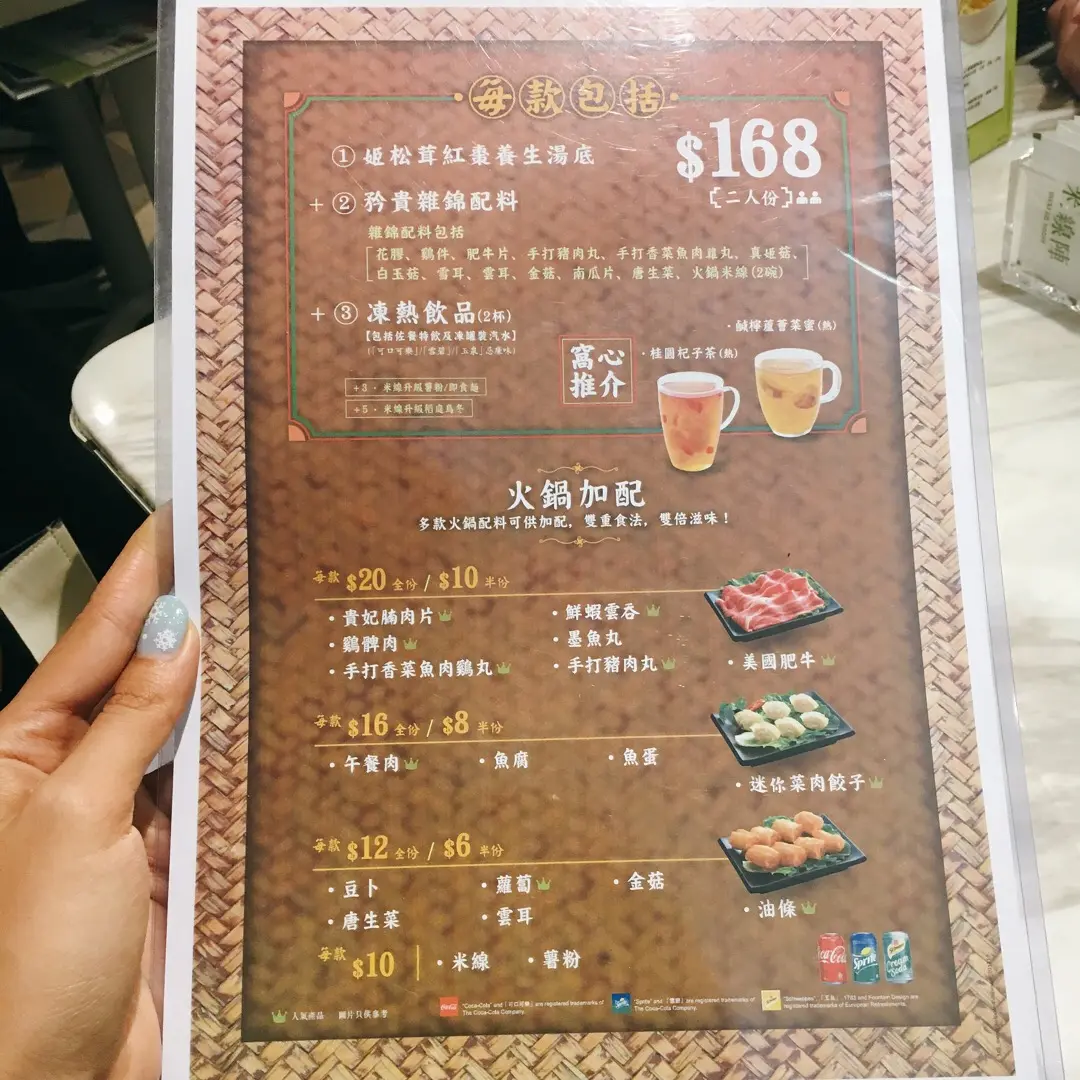 每款包括
① 姬松茸紅棗養生湯底
$168
[二人份]
+ ② 矜貴雜錦配料
雜錦配料包括
花膠、鷄件、肥牛片、手打豬肉丸、手打香菜魚肉雞丸、真姬菇、
白玉菇、雪耳、雲耳、金菇、南瓜片、唐生菜、火鍋米線(2碗)
+ ③ 凍熱飲品(2杯)
【包括佐餐特飲及凍罐裝汽水】
(「可口可樂」/「雪碧」/「玉泉」忌廉味)
+3・米線升級薯粉/即食麵
+5・米線升級稻庭烏冬
窩心
推介
・鹹檸蘆薈菜蜜(熱)
・桂圓杞子茶(熱)
火鍋加配
多款火鍋配料可供加配，雙重食法，雙倍滋味！
每款 $20 全份 / $10 半份
・貴妃腩肉片
・鮮蝦雲吞
・鷄髀肉
・墨魚丸
・手打香菜魚肉鷄丸
・手打豬肉丸
・美國肥牛
每款 $16 全份 / $8 半份
・午餐肉
・魚腐
・魚蛋
・迷你菜肉餃子
每款 $12 全份 / $6 半份
・豆卜
・蘿蔔
・金菇
・唐生菜
・雲耳
・油條
每款 $10
・米線
・薯粉
Coca-Cola
Sprite
Cream Soda
人氣產品 圖片只供參考
"Coca-Cola" and「可口可樂」are registered trademarks of
The Coca-Cola Company.
"Sprite" and「雪碧」are registered trademarks of
The Coca-Cola Company.
"Schweppes",「玉泉」, 1783 and Fountain Design are
registered trademarks of European Refreshments.
米線陣